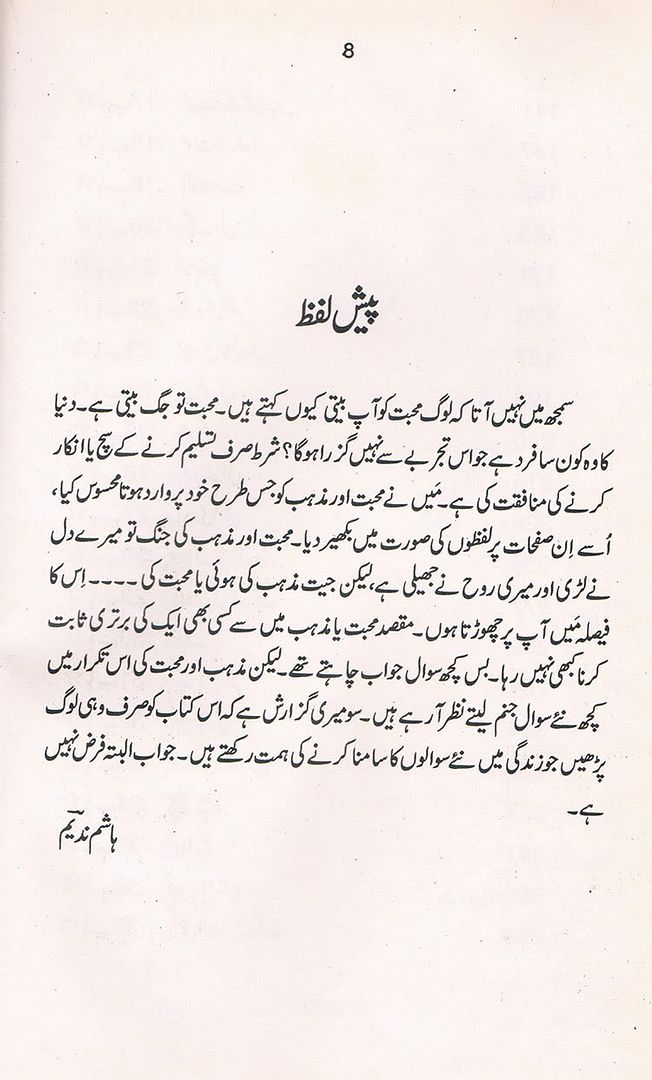 8
پیش لفظ
سمجھ میں نہیں آتا کہ لوگ محبت کو آپ بیتی کیوں کہتے ہیں۔ محبت تو جگ بیتی ہے۔ دنیا
کا وہ کون سا فرد ہے جو اس تجربے سے نہیں گزرا ہوگا؟ شرط صرف تسلیم کرنے کے سچ یا انکار
کرنے کی منافقت کی ہے۔ مَیں نے محبت اور مذہب کو جس طرح خود پر وارد ہوتا محسوس کیا،
اُسے اِن صفحات پر لفظوں کی صورت میں بکھیر دیا۔ محبت اور مذہب کی جنگ تو میرے دل
نے لڑی اور میری روح نے جھیلی ہے، لیکن جیت مذہب کی ہوئی یا محبت کی ۔۔۔۔ اِس کا
فیصلہ مَیں آپ پر چھوڑتا ہوں۔ مقصد محبت یا مذہب میں سے کسی بھی ایک کی برتری ثابت
کرنا کبھی نہیں رہا۔ بس کچھ سوال جواب چاہتے تھے۔ لیکن مذہب اور محبت کی اس تکرار میں
کچھ نئے سوال جنم لیتے نظر آ رہے ہیں۔ سو میری گزارش ہے کہ اس کتاب کو صرف وہی لوگ
پڑھیں جو زندگی میں نئے سوالوں کا سامنا کرنے کی ہمت رکھتے ہیں۔ جواب البتہ فرض نہیں
ہے۔
ہاشم ندیم